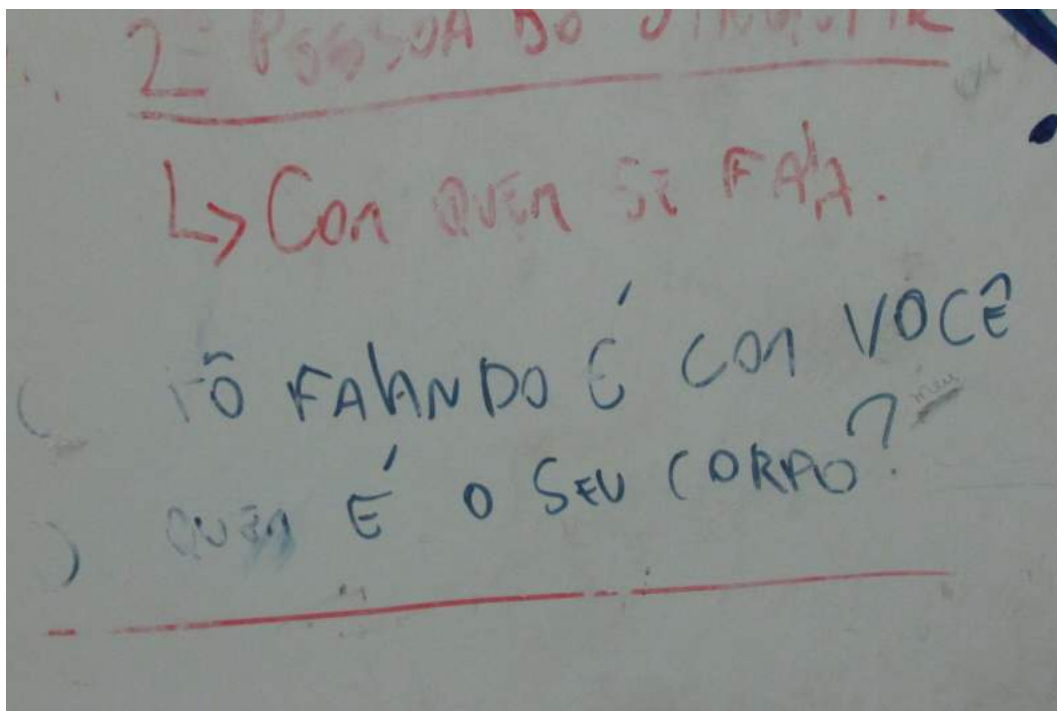 2ª PESSOA DO SINGULAR
↳ COM QUEM SE FALA.
TÔ FALANDO É COM VOCÊ
meu
QUEM É O SEU CORPO?